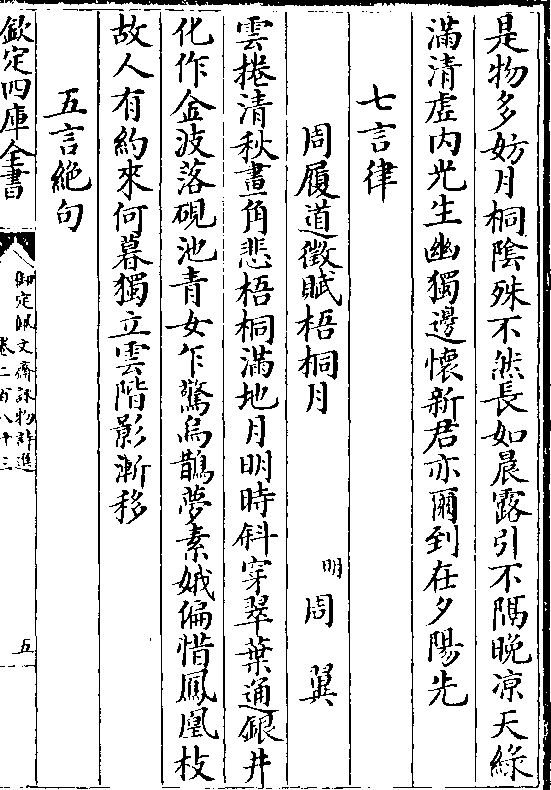 是物多妨月桐陰殊不然長如晨露引不隔晚凉天綠
滿清虛内光生幽獨邊懷新君亦爾到在夕陽先
七言律
周履道徵賦梧桐月　明　周翼
雲捲清秋畫角悲梧桐滿地月明時斜穿翠葉通銀井
化作金波落硯池青女乍驚烏鵲夢素娥偏惜鳳凰枝
故人有約來何暮獨立雲階影漸移
五言絶句
欽定四庫全書
御定佩文齋詠物詩選
卷二百八十三
五